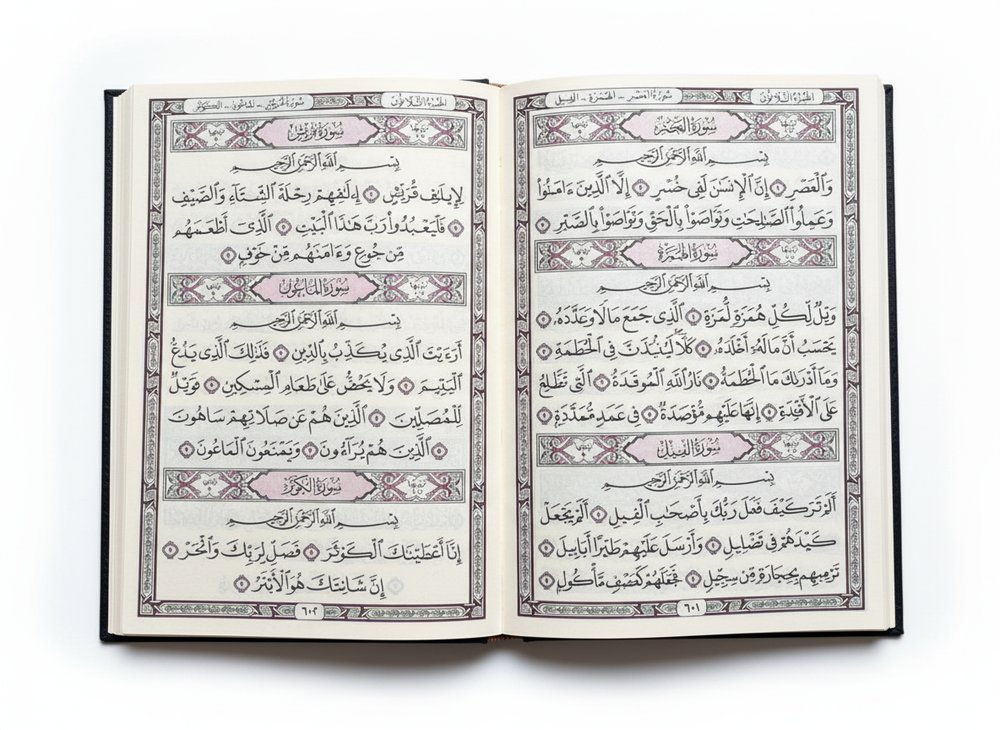 الجزء الثلاثون
سورة العصر - الهمزة - الفيل
سورة العصر
بِسْمِ اللَّهِ الرَّحْمَٰنِ الرَّحِيمِ
وَالْعَصْرِ إِنَّ الْإِنسَٰنَ لَفِى خُسْرٍ إِلَّا الَّذِينَ ءَامَنُواْ
وَعَمِلُواْ الصَّٰلِحَٰتِ وَتَوَاصَوْاْ بِالْحَقِّ وَتَوَاصَوْاْ بِالصَّبْرِ
سورة الهمزة
بِسْمِ اللَّهِ الرَّحْمَٰنِ الرَّحِيمِ
وَيْلٌ لِّكُلِّ هُمَزَةٍ لُّمَزَةٍ الَّذِى جَمَعَ مَالًا وَعَدَّدَهُۥ
يَحْسَبُ أَنَّ مَالَهُۥٓ أَخْلَدَهُۥ كَلَّا لَيُنۢبَذَنَّ فِى الْحُطَمَةِ
وَمَآ أَدْرَىٰكَ مَا الْحُطَمَةُ نَارُ اللَّهِ الْمُوقَدَةُ الَّتِى تَطَّلِعُ
عَلَى الْأَفْـِٔدَةِ إِنَّهَا عَلَيْهِم مُّؤْصَدَةٌ فِى عَمَدٍ مُّمَدَّدَةٍ
سورة الفيل
بِسْمِ اللَّهِ الرَّحْمَٰنِ الرَّحِيمِ
أَلَمْ تَرَ كَيْفَ فَعَلَ رَبُّكَ بِأَصْحَٰبِ الْفِيلِ أَلَمْ يَجْعَلْ
كَيْدَهُمْ فِى تَضْلِيلٍ وَأَرْسَلَ عَلَيْهِمْ طَيْرًا أَبَابِيلَ
تَرْمِيهِم بِحِجَارَةٍ مِّن سِجِّيلٍ فَجَعَلَهُمْ كَعَصْفٍ مَّأْكُولٍ
٦٠١
الجزء الثلاثون
سورة قريش - الماعون - الكوثر
سورة قريش
بِسْمِ اللَّهِ الرَّحْمَٰنِ الرَّحِيمِ
لِإِيلَٰفِ قُرَيْشٍ إِۦلَٰفِهِمْ رِحْلَةَ الشِّتَآءِ وَالصَّيْفِ
فَلْيَعْبُدُواْ رَبَّ هَٰذَا الْبَيْتِ الَّذِىٓ أَطْعَمَهُم
مِّن جُوعٍ وَءَامَنَهُم مِّنْ خَوْفٍ
سورة الماعون
بِسْمِ اللَّهِ الرَّحْمَٰنِ الرَّحِيمِ
أَرَءَيْتَ الَّذِى يُكَذِّبُ بِالدِّينِ فَذَٰلِكَ الَّذِى يَدُعُّ
الْيَتِيمَ وَلَا يَحُضُّ عَلَىٰ طَعَامِ الْمِسْكِينِ فَوَيْلٌ
لِّلْمُصَلِّينَ الَّذِينَ هُمْ عَن صَلَاتِهِمْ سَاهُونَ
الَّذِينَ هُمْ يُرَآءُونَ وَيَمْنَعُونَ الْمَاعُونَ
سورة الكوثر
بِسْمِ اللَّهِ الرَّحْمَٰنِ الرَّحِيمِ
إِنَّآ أَعْطَيْنَٰكَ الْكَوْثَرَ فَصَلِّ لِرَبِّكَ وَانْحَرْ
إِنَّ شَانِئَكَ هُوَ الْأَبْتَرُ
٦٠٢